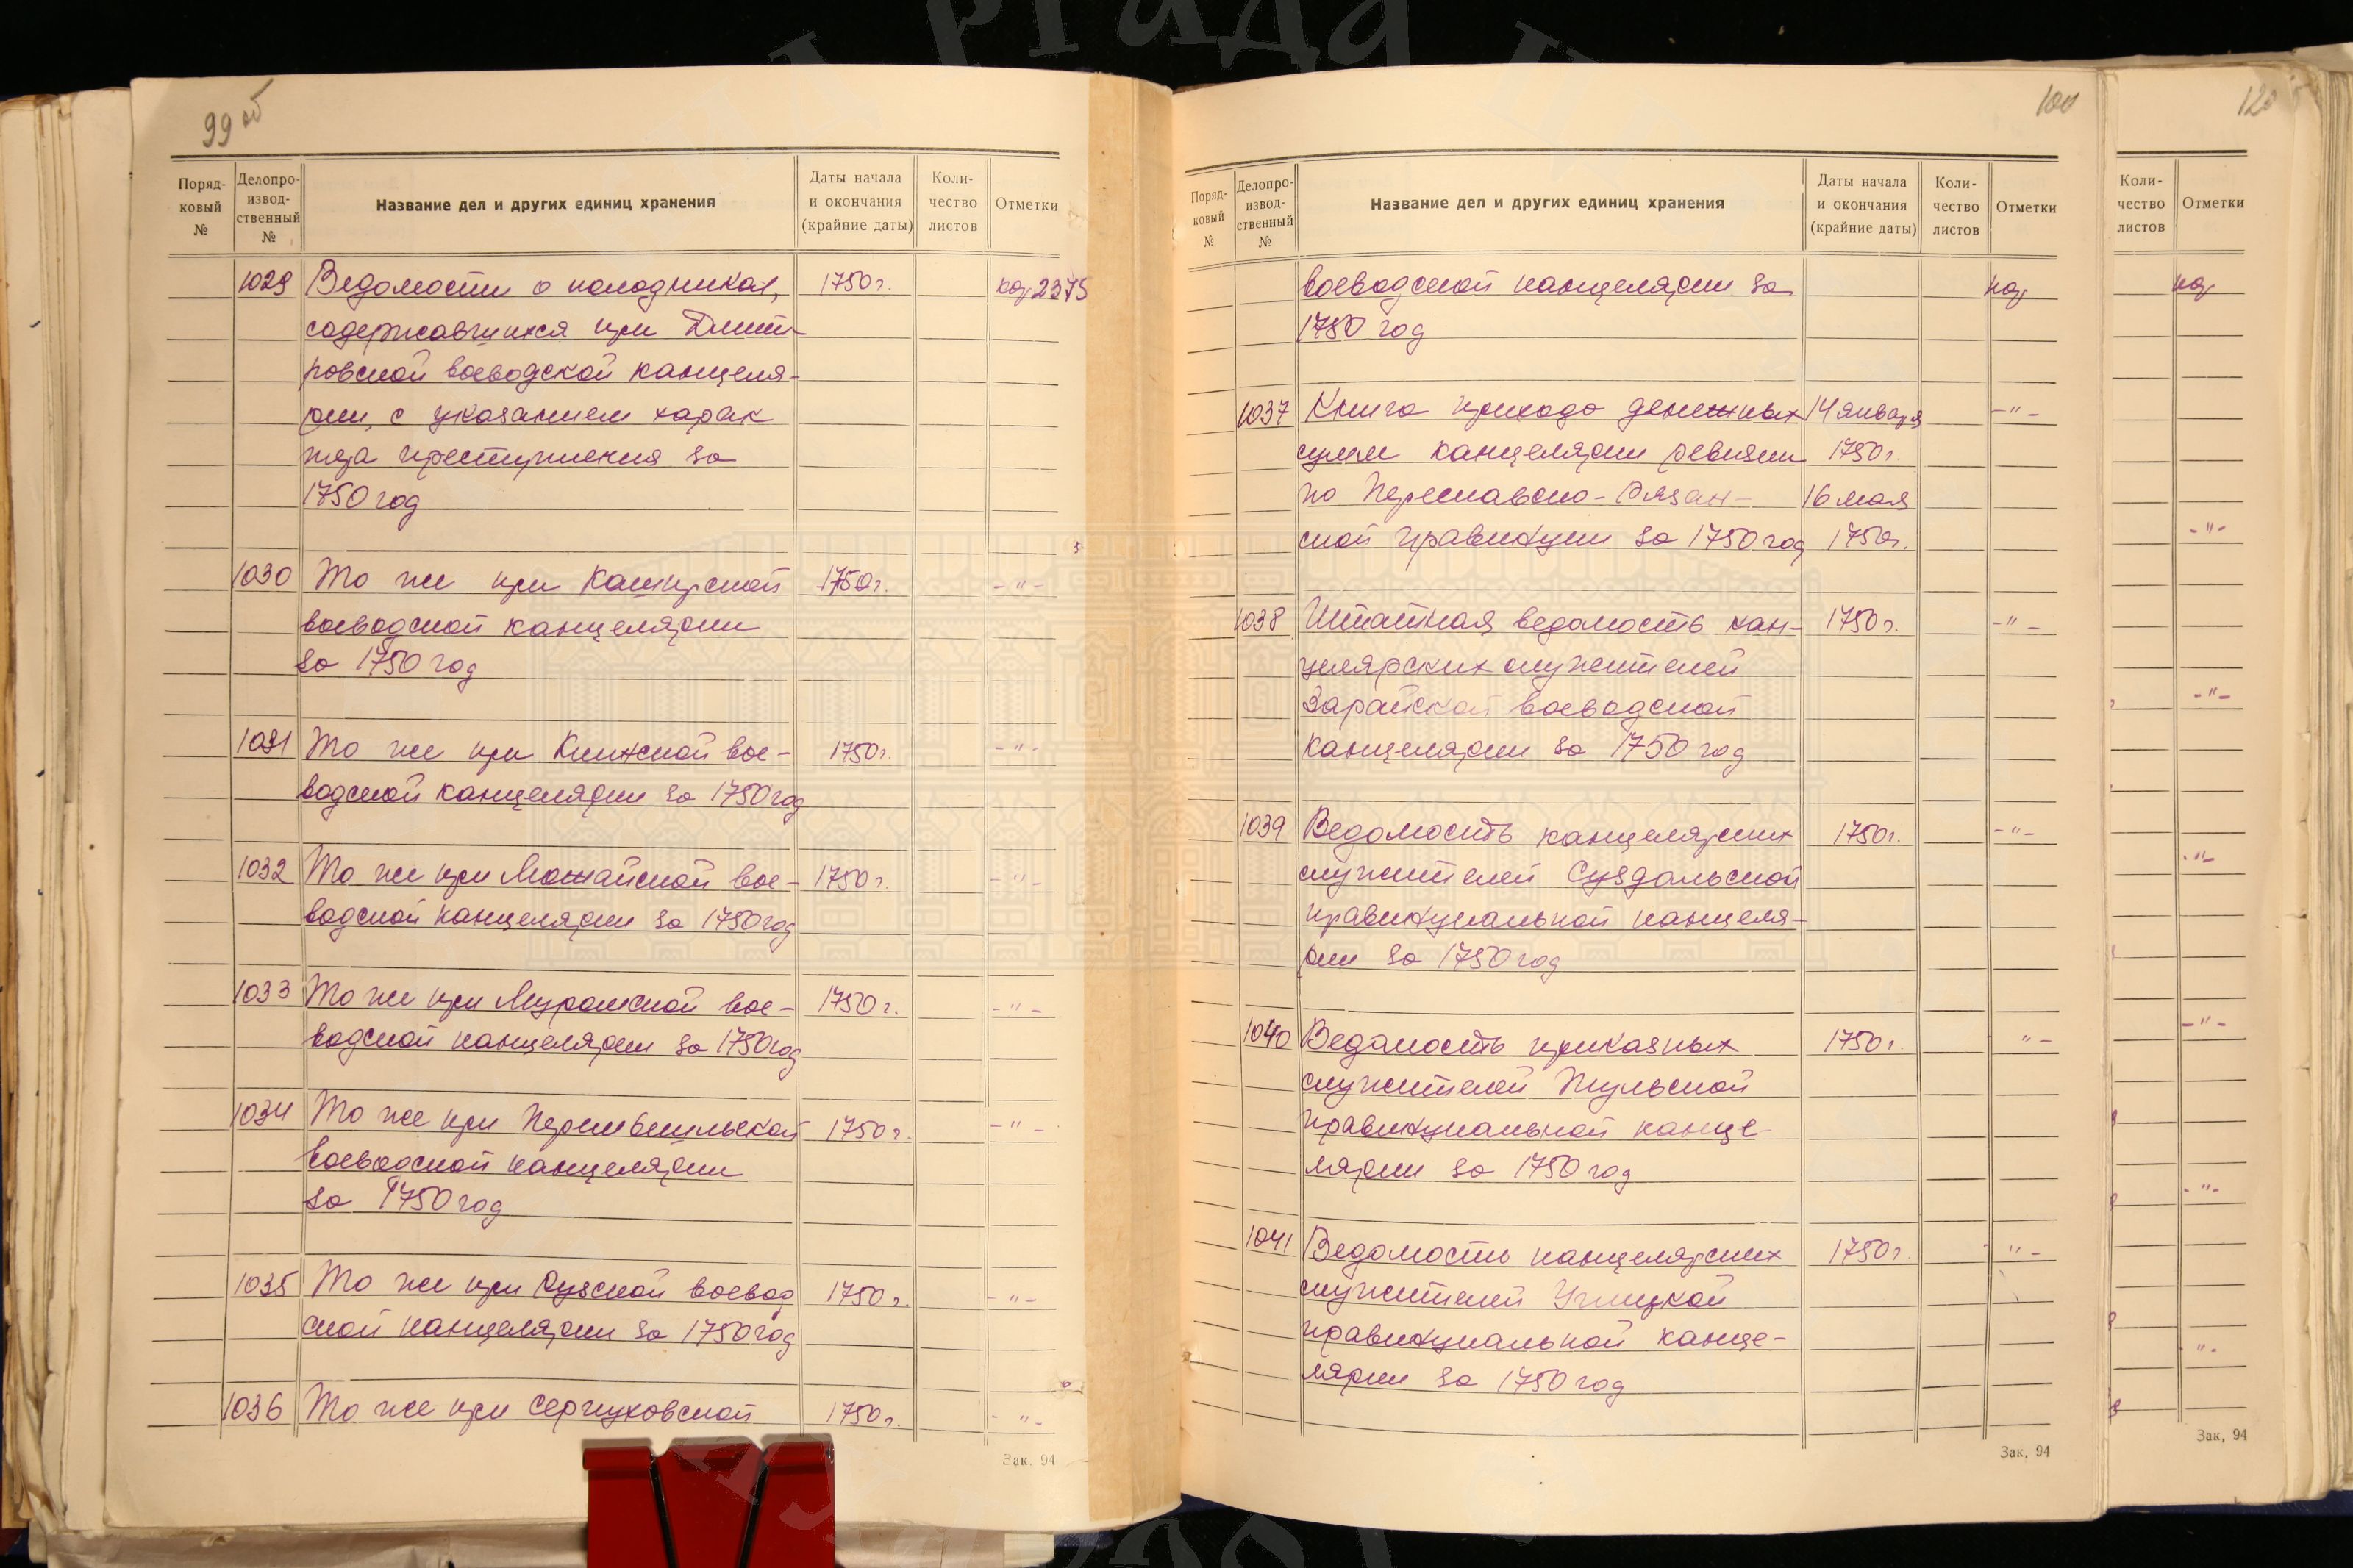 99 об
Поряд-
ковый
№
Делопро-
извод-
ственный
№
Название дел и других единиц хранения
Даты начала
и окончания
(крайние даты)
Коли-
чество
листов
Отметки
1029 Ведомости о колодниках, 1750 г. 2375
содержавшихся при Дмит-
ровской воеводской канцеля-
рии, с указанием харак
тера преступления за
1750 год
1030 То же при Каширской 1750 г. - " -
воеводской канцелярии
за 1750 год
1031 То же при Клинской вое- 1750 г. - " -
водской канцелярии за 1750 год
1032 То же при Можайской вое- 1750 г. - " -
водской канцелярии за 1750 год
1033 То же при Муромской вое- 1750 г. - " -
водской канцелярии за 1750 год
1034 То же при Перемышльской 1750 г. - " -
воеводской канцелярии
за 1750 год
1035 То же при Рузской воевод 1750 г. - " -
ской канцелярии за 1750 год
1036 То же при Серпуховской 1750 г. - " -
Зак. 94
100
Поряд-
ковый
№
Делопро-
извод-
ственный
№
Название дел и других единиц хранения
Даты начала
и окончания
(крайние даты)
Коли-
чество
листов
Отметки
воеводской канцелярии за
1750 год
1037 Книга прихода денежных 14 января - " -
сумм канцелярии ревизии 1750 г.
по Переславско-Рязан- 16 мая
ской провинции за 1750 год 1750 г.
1038 Штатная ведомость кан- 1750 г. - " -
целярских служителей
Зарайской воеводской
канцелярии за 1750 год
1039 Ведомость канцелярских 1750 г. - " -
служителей Суздальской
провинциальной канцеля-
рии за 1750 год
1040 Ведомость приказных 1750 г. " -
служителей Тульской
провинциальной канце
лярии за 1750 год
1041 Ведомость канцелярских 1750 г. - " -
служителей Углицкой
провинциальной канце-
лярии за 1750 год
Зак, 94
Коли-
чество
листов
Отметки
- " -
- " -
- " -
- " -
- " -
" -
Зак, 94